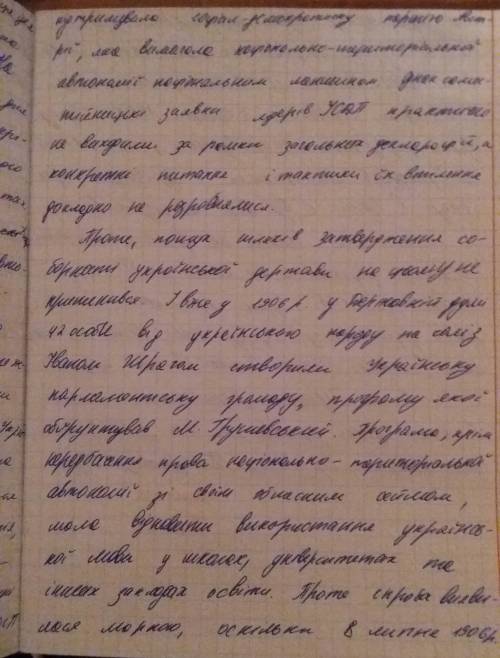 підтримувала соціал-демократичну партію Авст-
рії, яка вимагала національно-територіальної
автономії національним меншинам, однак само-
стійницькі заяви лідерів УСДП практично
не виходили за рамки загальних декларацій, а
конкретні питання і тактики їх втілення
докладно не розроблялися.
Проте, пошук шляхів затвердження со-
борності української держави на цьому не
припинився. І вже у 1906 р. у Державній думі
42 особи від українського народу на чолі з
Іваном Шрагом створили Українську
парламентську громаду, програму якої
обґрунтував М. Грушевський. Програма, крім
передбачення права національно-територіальної
автономії зі своїм обласним сеймом,
мала відновити використання українсь-
кої мови у школах, університетах та
інших закладах освіти. Проте спроба вияви-
лася марною, оскільки 8 липня 1906 р.